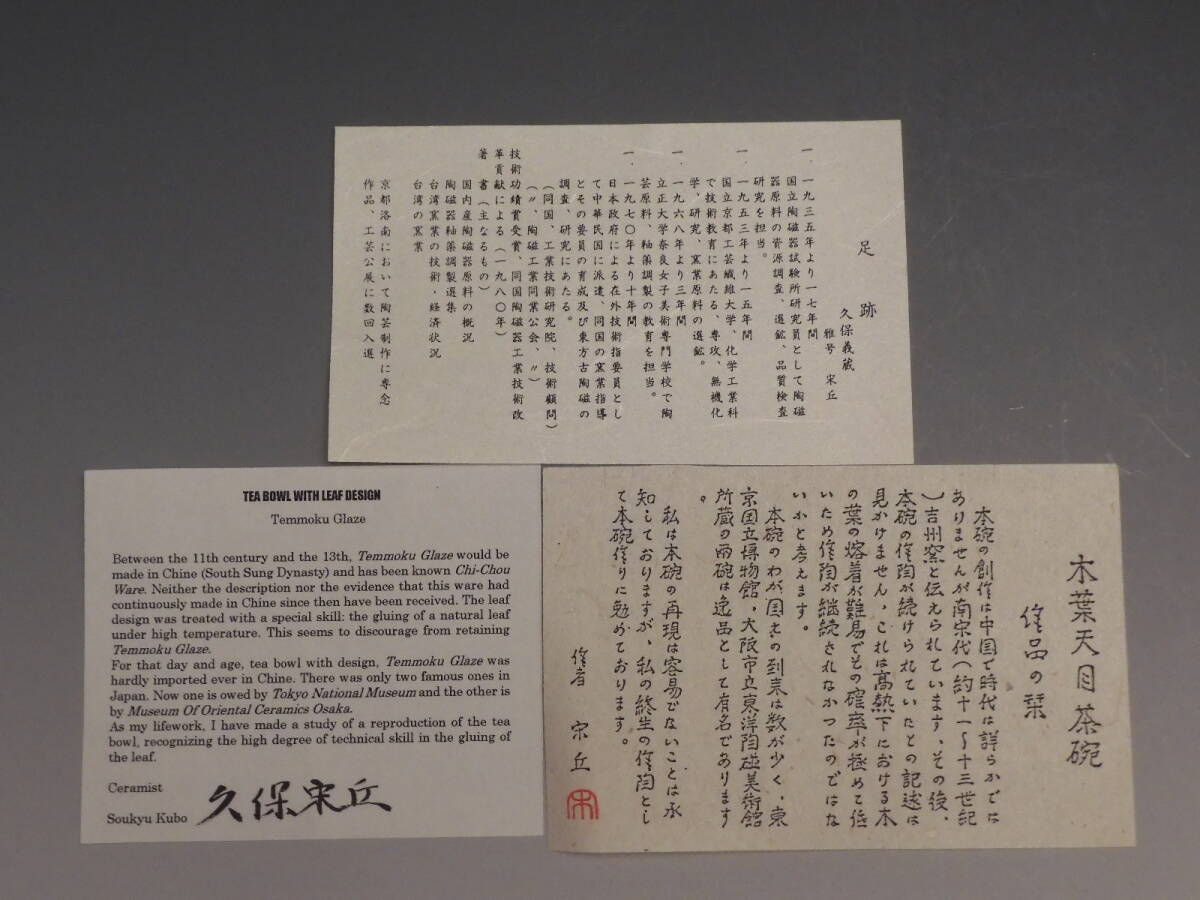 足跡
久保義蔵
雅号 宋丘
一、一九三五年より一七年間
国立陶磁器試験所研究員として陶磁
器原料の資源調査、選鉱、品質検査
研究を担当。
一、一九五三年より一五年間
国立京都工芸繊維大学、化学工業科
で技術教育にあたる、専攻、無機化
学、研究、窯業原料の選鉱。
一、一九六八年より三年間
立正大学奈良女子美術専門学校で陶
芸原料、釉薬調製の教育を担当。
一、一九七〇年より十年間
日本政府による在外技術指導要員とし
て中華民国に派遣、同国の窯業指導
とその要員の育成及び東方古陶磁の
調査、研究にあたる。
(同国、工業技術研究院、技術顧問)
(〃、陶磁工業同業公会、〃)
技術功績賞受賞、同国陶磁器工業技術改
革貢献による(一九八〇年)
著書(主なるもの)
国内産陶磁器原料の概況
陶磁器釉薬調製選集
台湾窯業の技術・経済状況
台湾の窯業
京都洛南において陶芸制作に専念
作品、工芸公展に数回入選
TEA BOWL WITH LEAF DESIGN
Temmoku Glaze
Between the 11th century and the 13th, Temmoku Glaze would be
made in Chine (South Sung Dynasty) and has been known Chi-Chou
Ware. Neither the description nor the evidence that this ware had
continuously made in Chine since then have been received. The leaf
design was treated with a special skill: the gluing of a natural leaf
under high temperature. This seems to discourage from retaining
Temmoku Glaze.
For that day and age, tea bowl with design, Temmoku Glaze was
hardly imported ever in Chine. There was only two famous ones in
Japan. Now one is owed by Tokyo National Museum and the other is
by Museum Of Oriental Ceramics Osaka.
As my lifework, I have made a study of a reproduction of the tea
bowl, recognizing the high degree of technical skill in the gluing of
the leaf.
Ceramist
Soukyu Kubo 久保宋丘
木葉天目茶碗
作品の栞
本碗の創作は中国で時代は詳らかでは
ありませんが南宋代(約十一〜十三世紀
)吉州窯と伝えられています、その後、
本碗の作陶が続けられていたとの記述は
見かけません、これは高熱下における木
の葉の熔着が難易でその確率が極めて低
いため作陶が継続されなかつたのではな
いかと考えます。
本碗のわが国えの到来は数が少く、東
京国立博物館、大阪市立東洋陶磁美術館
所蔵の両碗は逸品として有名であります
。
私は本碗の再現は容易でないことは承
知しておりますが、私の終生の作陶とし
て本碗作りに勉めております。
作者 宋丘